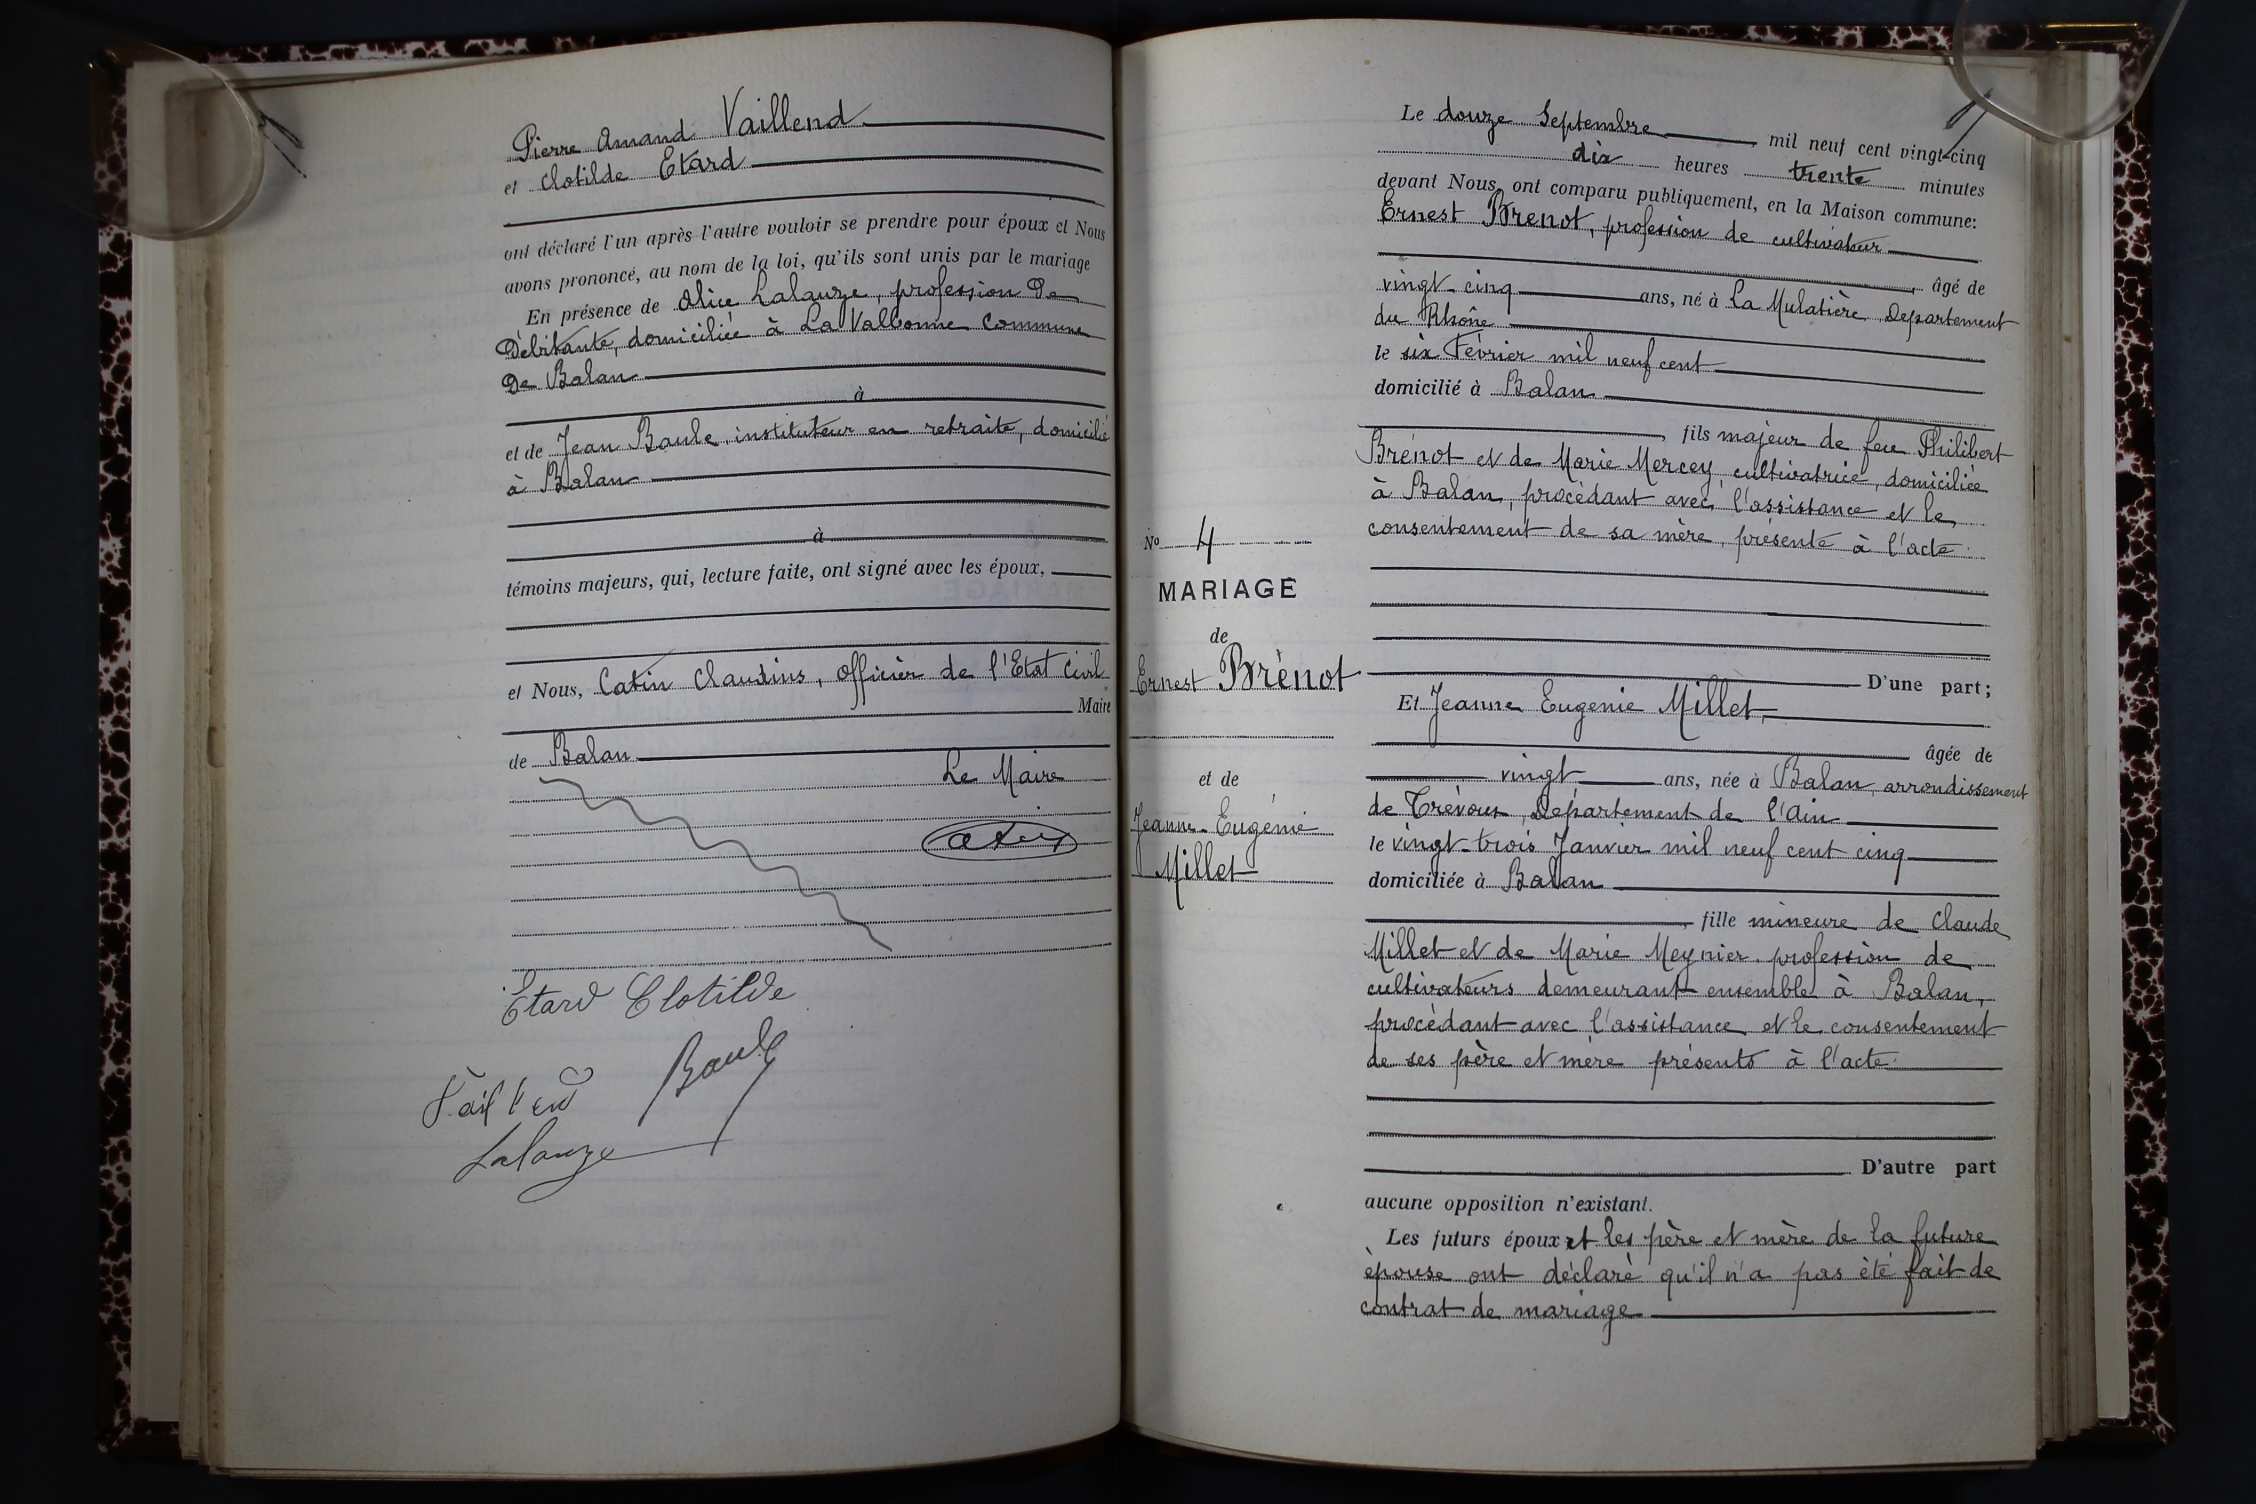 Pierre Amand Vaillend
et Clotilde Etard
ont déclaré l'un après l'autre vouloir se prendre pour époux et Nous
avons prononcé, au nom de la loi, qu'ils sont unis par le mariage
En présence de Alice Lalauze, profession De
Débitante, domiciliée à La Valbonne Commune
De Balan
à
et de Jean Baule, instituteur en retraite, domicilié
à Balan
à
témoins majeurs, qui, lecture faite, ont signé avec les époux,
et Nous, Catin Claudius, Officier de l'Etat Civil
Maire
de Balan
Le Maire
Catin
Etard Clotilde
Baule
Vaillend
Lalauze
Le douze Septembre mil neuf cent vingt-cinq
dix heures trente minutes
devant Nous, ont comparu publiquement, en la Maison commune:
Ernest Brenot, profession de cultivateur
âgé de
vingt-cinq ans, né à La Mulatière, Département
du Rhône
le six Février mil neuf cent
domicilié à Balan
fils majeur de feu Philibert
Brénot et de Marie Mercey, cultivatrice, domiciliée
à Balan, procèdant avec l'assistance et le
consentement de sa mère, présente à l'acte.
D'une part;
Et Jeanne Eugenie Millet,
âgée de
vingt ans, née à Balan, arrondissement
de Trévoux, Département de l'Ain
le vingt-trois Janvier mil neuf cent cinq
domiciliée à Balan
fille mineure de Claude
Millet et de Marie Meynier profession de
cultivateurs demeurant ensemble à Balan,
procèdant avec l'assistance et le consentement
de ses père et mère présents à l'acte.
D'autre part
aucune opposition n'existant.
Les futurs époux et les père et mère de la future
épouse ont déclaré qu'il n'a pas été fait de
contrat de mariage
No 4
MARIAGE
de
Ernest Brènot
et de
Jeanne-Eugénie
Millet